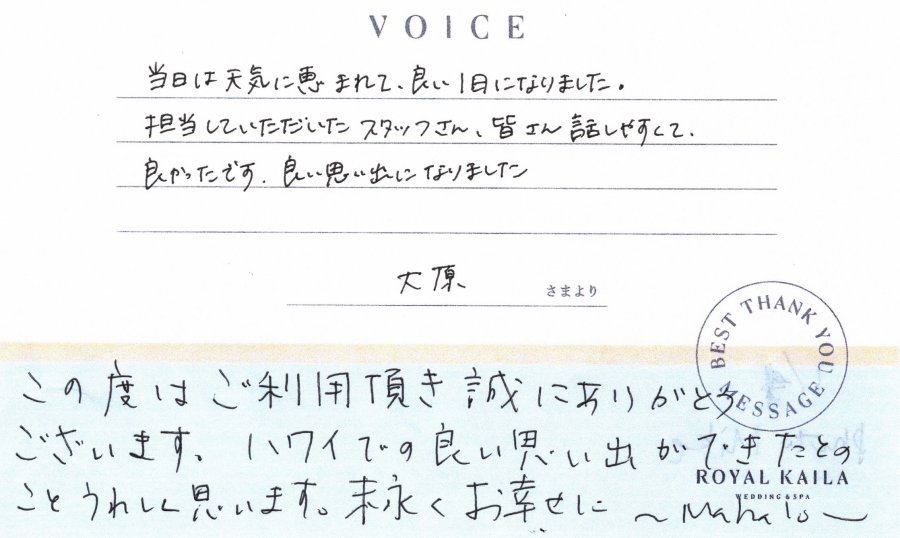 VOICE
当日は天気に恵まれて、良い1日になりました。
担当していただいたスタッフさん、皆さん話しやすくて、
良かったです、良い思い出になりました
大原 さまより
BEST THANK YOU MESSAGE
この度はご利用頂き誠にありがとう
ございます。ハワイでの良い思い出ができたとの
ROYAL KAILA
WEDDING & SPA
ことうれしく思います。末永くお幸せに ～Mahalo～